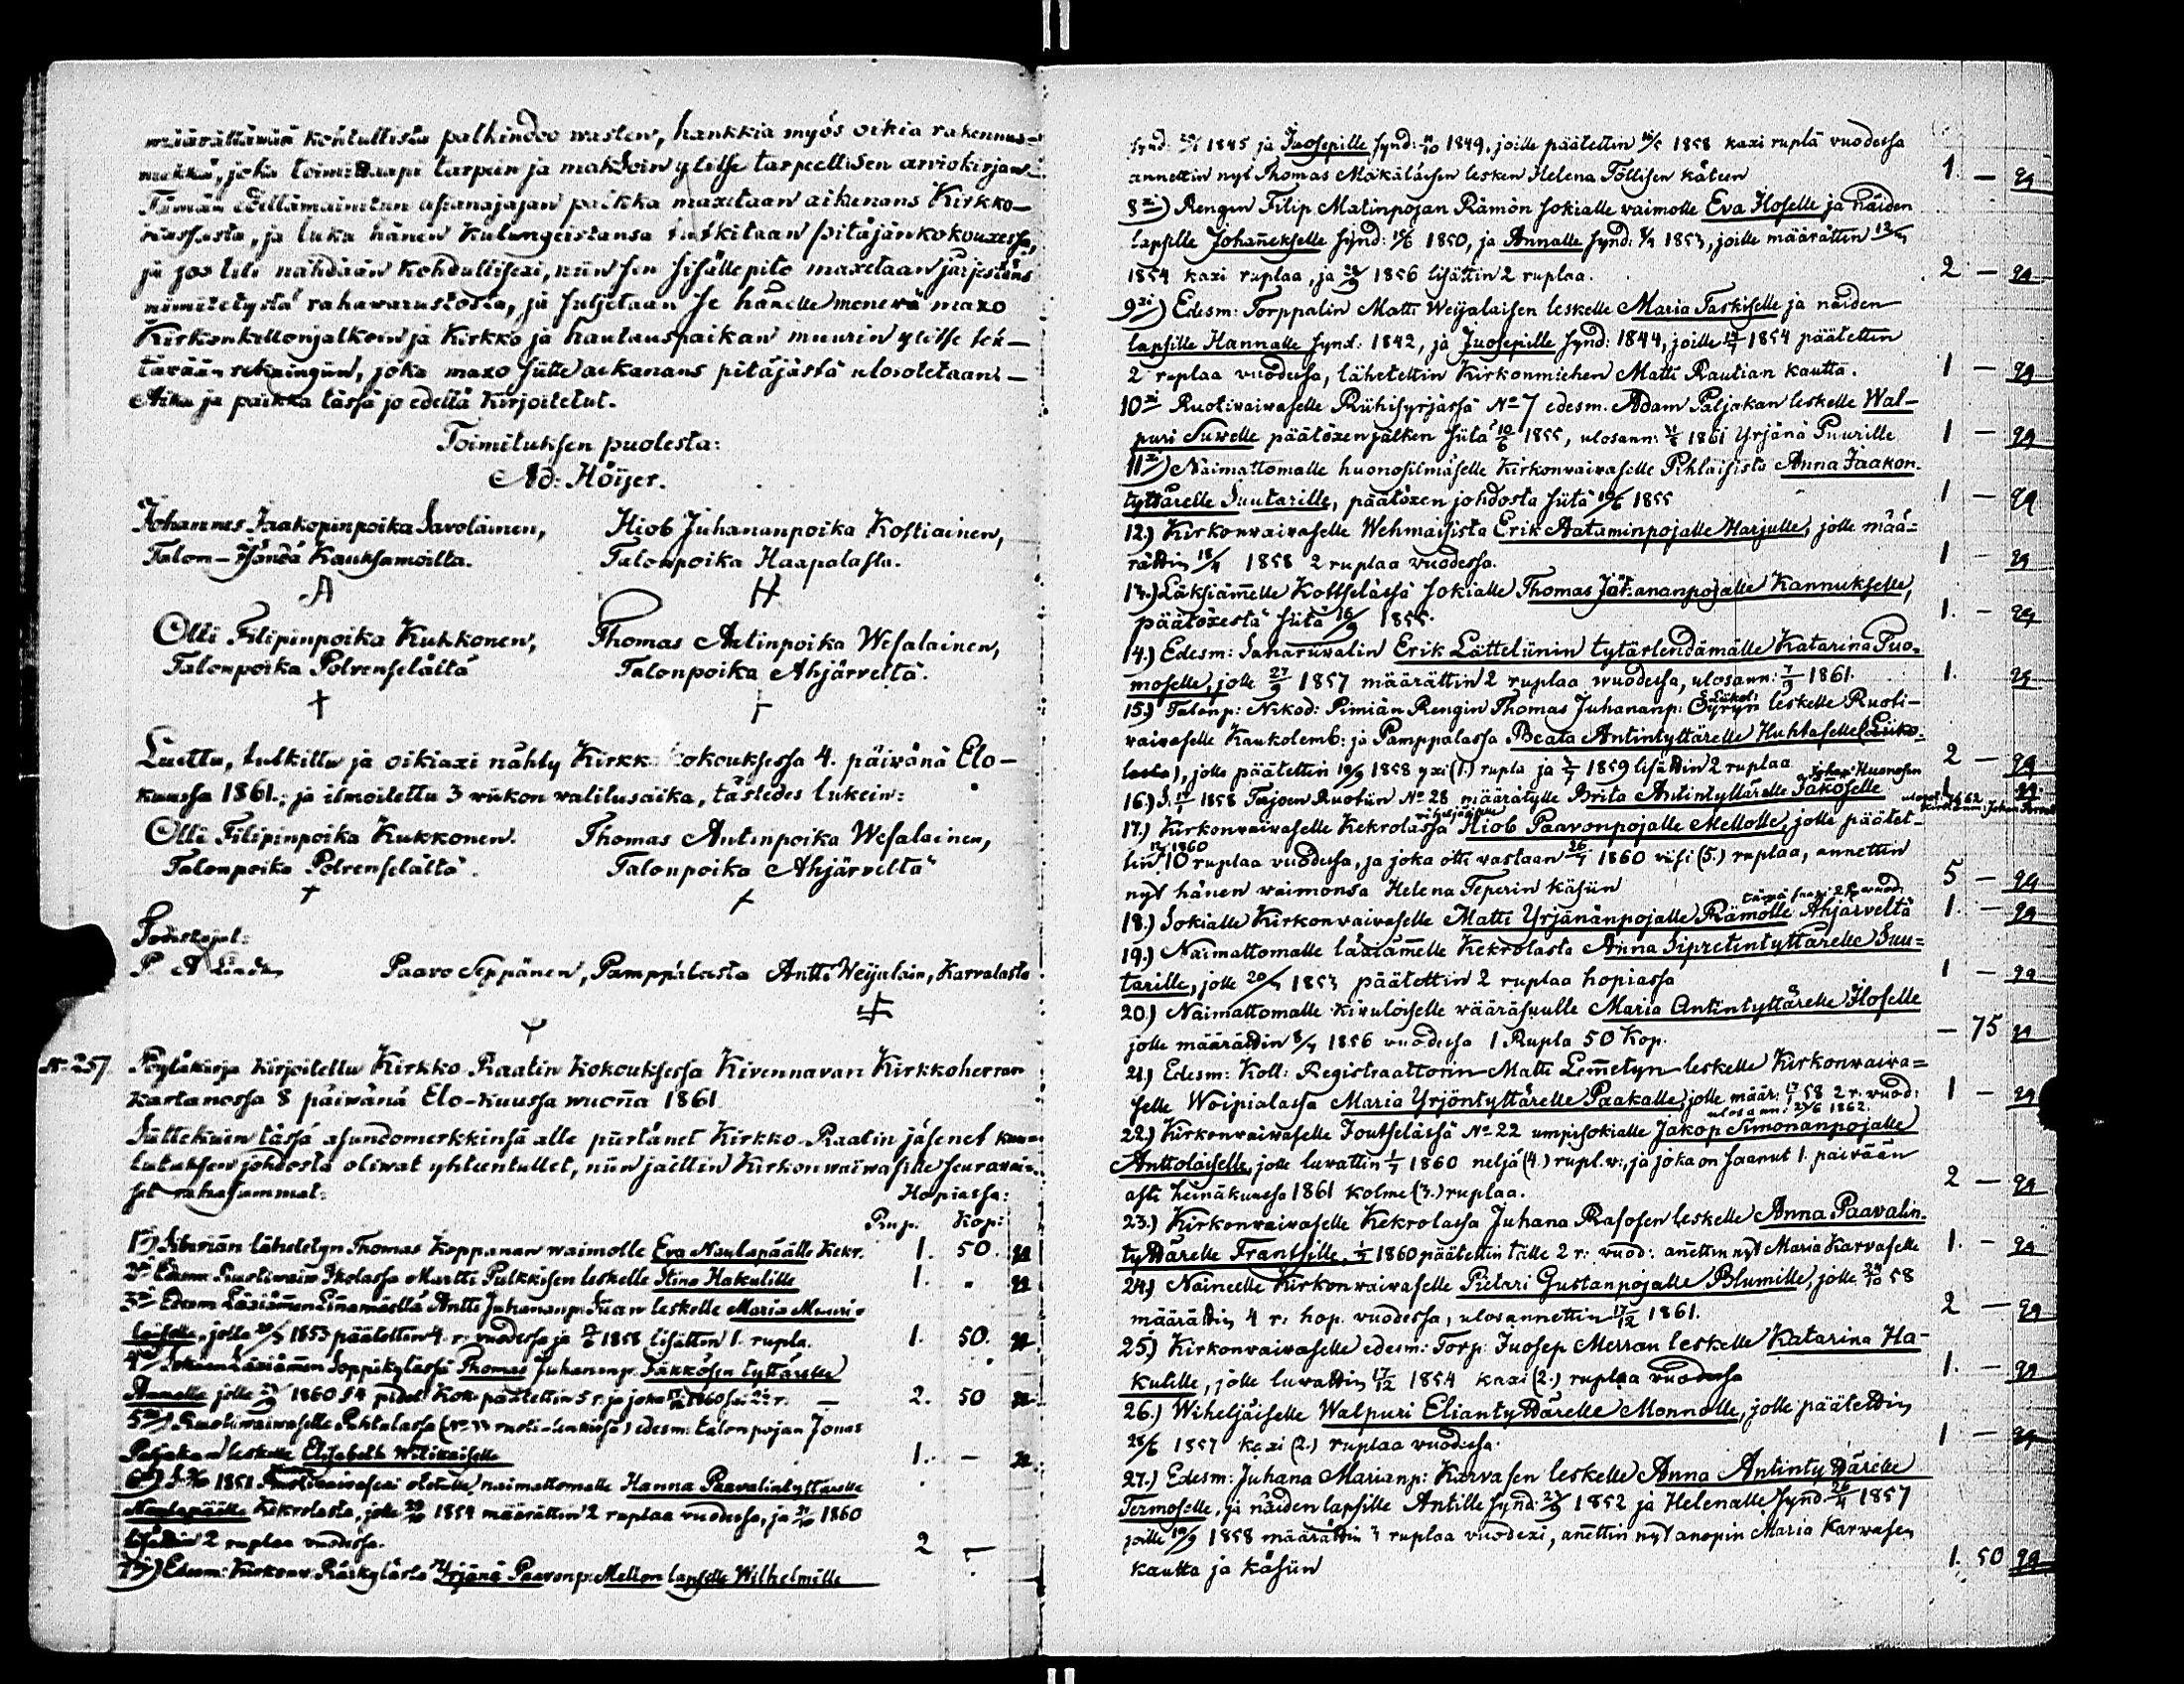 määrättämän kohtullista palkindoo wasten, hankkia myös oikia rakennus-
joka toimittaapi tarpeen ja maksoin ylitse tarpeellisen arviokirjan.
Tämän edellämainitun asianajajan palkka maxetaan aikenans Kirkko-
kassasta, ja luku hänen Kulungeistansa tutkitaan pitäjänkokouxessa,
ja jos tili nähdään kohdullisexi, niin sen sisällepito maxetaan järjestäns
nimitetystä rahavarustosta, ja suljetaan se hänelle menevä maxo
Kirkonkellonjalkoin ja Kirkko ja hautauspaikan muurin ylitse teh-
tävään rekningiin, joka maxo sitte aikanans pitäjästä ulosotetaan. –
Aika ja paikka tässä jo edellä Kirjoitetut.
Toimituksen puolesta:
Ad: Höijer.
Johannes Jaakopinpoika Savolainen, Hiob Juhananpoika Kostiainen,
Talon-Isändä Kauksamoilta. Talonpoika Haapalasta.
A H
Olli Filipinpoika Kukkonen, Thomas Antinpoika Wesalainen,
Talonpoika Polvenselältä Talonpoika Ahjärveltä.
Luettu, tutkittu ja oikiaxi nähty Kirkkokokouksessa 4. päivänä Elo-
kuussa 1861.; ja ilmoitettu 3 viikon valitusaika, tästedes lukein:
Olli Filipinpoika Kukkonen. Thomas Antinpoika Wesalainen,
Talonpoika Polvenselältä. Talonpoika Ahjärveltä
Todistajat:
P A Paavo Seppänen, Pamppalasta Antti Weijalain, Karvalasta
No 257. Pöytäkirja Kirjoitettu Kirkko-Raatin Kokouksessa Kivennavan Kirkkoherran
Kartanossa 8 päivänä Elo-Kuussa wuoña 1861.
Sittekuin tässä asundomerkkinsä alle piirtänet Kirkko-Raatin jäsenet kuu-
lutuksen johdosta oliwat yhteentullet, niin jaettin Kirkonwaiwasille seuravai-
set rahasummat: Hopiassa:
Rup. Kop:
1) Siberiän lähetetyn Thomas Koppanan waimolle Eva Naulapäälle Kekr. 1. 50.
2 Edesm: Ikolassa Martti Pulkkisen leskelle Stina Hakulille 1.
3 Edesm Antti Juhananp: leskelle Maria
jolla 1853 päätettin 4. r. vuodessa ja 1858 lisättin 1. rupla. 1. 50.
4 Soppikylässä Thomas Juhananp. Jäkkösen tyttärelle
Annalle jolle 1860 päätettin 5 r. ja 2. 50
5) Ruotiwaiwaselle Pihlalassa edesm: talonpojan Jonas
Paljakan leskelle Elisabeth 1. –
6) 1851 naimattomalle Hanna Paavalintyttärelle
Naulapäälle Kekrolasta, jolle 1854 määrättin 2 ruplaa vuodessa, ja 1860
lisättin 2 ruplaa vuodessa. 2 –
7) Edesm: Kirkonv: Räikylästä Yrjänä Paavonp: Mellon lapselle Wilhelmille
synd: 1845 ja Juosepille synd: 1849, joille päätettin 16/5 1858 kaxi ruplä vuodessa
annettin nyt Thomas Mäkäläisen lesken Helena Töllisen käteen 1. –
8) Rengin Filip Matinpojan Rämön sokialle vaimolle Eva Iloselle ja näiden
lapsille Johañekselle synd: 15/6 1850, ja Annalle synd: 1853, joille määrättin
1854 kaxi ruplaa, ja 1856 lisättin 2 ruplaa. 2 –
9) Edesm: Torppalin Matti Weijalaisen leskelle Maria Taskiselle ja näiden
lapsille Hannalle synd: 1842, ja Juosepille synd: 1844, joille 1854 päätettin
2 ruplaa vuodessa, lähetettin Kirkonmiehen Matti Rautian kautta. 1 –
10 Ruotivaivaselle Riihisyrjässä No 7 edesm. Adam Paljakan leskelle Wal-
puri Suwelle päätöxen jälken siitä 10/6 1855, ulosann: 1861 Yrjänä Puurille 1 –
11) Naimattomalle huonosilmäselle Kirkonvaivaselle Pihlaisista Anna Jaakon-
tyttärelle Suutarille, päätöxen johdosta siitä 10/6 1855 1 –
12.) Kirkonvaivaselle Wehmaisista Erik Aataminpojalle Harjulle, jolle mää-
rättin 18/4 1858 2 ruplaa vuodessa. 1 –
13.) Läksiäm̃elle Kottselässä sokialle Thomas Juhananpojalle Kannukselle,
päätöxestä siitä 16/9 1855. 1. –
14.) Edesm: Sanaruvalin Erik Lättelinin tytärlendämälle Katarina Puo-
moselle, jolle 27/9 1857 määrättin 2 ruplaa wuodessa, ulosann: 7/9 1861. 1.
15.) Talonp: Nikod: Pimiän Rengin Thomas Juhananp: leskelle Ruoti-
vaivaselle Kaukolemb: ja Pamppalassa Beata Antintyttärelle Huhtaselle (Liiko-
lasta), jolle päätettin 19/9 1858 yxi (1.) rupla ja 1859 lisättin 2 ruplaa 2 –
16.) S. 1858 Tajoen Ruotiin No 28 määrätylle Brita Antintyttärelle Jakoselle 1
17.) Kirkonvaivaselle Kekrolassa Hiob Paavonpojalle Mellolle, jolle päätet-
tin 10 ruplaa vuodessa, ja joka otti vastaan 1860 viisi (5.) ruplaa, annettin
nyt hänen waimonsa Helena Teperin käsiin 5 –
18.) Sokialle Kirkonvaivaselle Matti Yrjänänpojalle Rämölle Ahjärveltä 1. –
19.) Naimattomalle Kekrolasta Anna Sipretintyttärelle Suu-
tarille, jolle 1853 päätettin 2 ruplaa hopiassa 1 –
20.) Naimattomalle kivuloiselle vääräsuulle Maria Antintyttärelle Iloselle
jolle määrättin 1856 vuodessa 1 Rupla 50 Kop. – 75
21.) Edesm: Koll: Registraattorin Matti Lem̃etyn leskelle Kirkonwaiva-
selle Woipialassa Maria Yrjöntyttärelle Paakalle, jolle määr: 58 2 r: vuod: 1 –
22.) Kirkonvaivaselle Joutselässä No 22 umpisokialle Jakop Simonanpojalle
Anttolaiselle, jolle luvattin 1860 neljä (4.) rupl. v:, ja joka on saanut 1. päivään
asti heinäkuussa 1861 kolme (3.) ruplaa. 2 –
23.) Kirkonvaivaselle Kekrolassa Juhana Rasosen leskelle Anna Paavalin-
tyttärelle Frantsille, 1860 päätettin tälle 2 r: vuod: anettin nyt Maria Karvaselle 1. –
24.) Naineelle Kirkonvaivaselle Pietari Gustanpojalle Blumille, jolle 58
määrättin 4 r. hop. vuodessa, ulosannettin 17/12 1861. 2 –
25.) Kirkonvaivaselle edesm: Torp: Juosep Merran leskelle Katarina Ha-
kulille, jolle luvattin 17/12 1854 kaxi (2.) ruplaa vuodessa 1. –
26.) Wiheljäiselle Walpuri Eliantyttärelle Monnolle, jolle päätettin
28/6 1857 kaxi (2.) ruplaa vuodessa. 1 –
27.) Edesm: Juhana Marianp: Karvasen leskelle Anna Antintyttärelle
Termoselle, ja näiden lapsille Antille synd: 1852 ja Helenalle synd 26/4 1857
joille 19/9 1858 määrättin 3 ruplaa vuodexi, anettin nyt anopin Maria Karvasen
kautta ja käsiin 1. 50